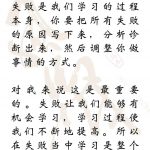 失败是我们学习的过程
本身，你要把所有失败
的原因写下来，分析诊
断出来，然后调整你做
事情的方式。
对我来说这是最重要
的。失败让我们能够有
机会学习，学习过程使
我们不断地提高。所以
在失败当中学习是整个